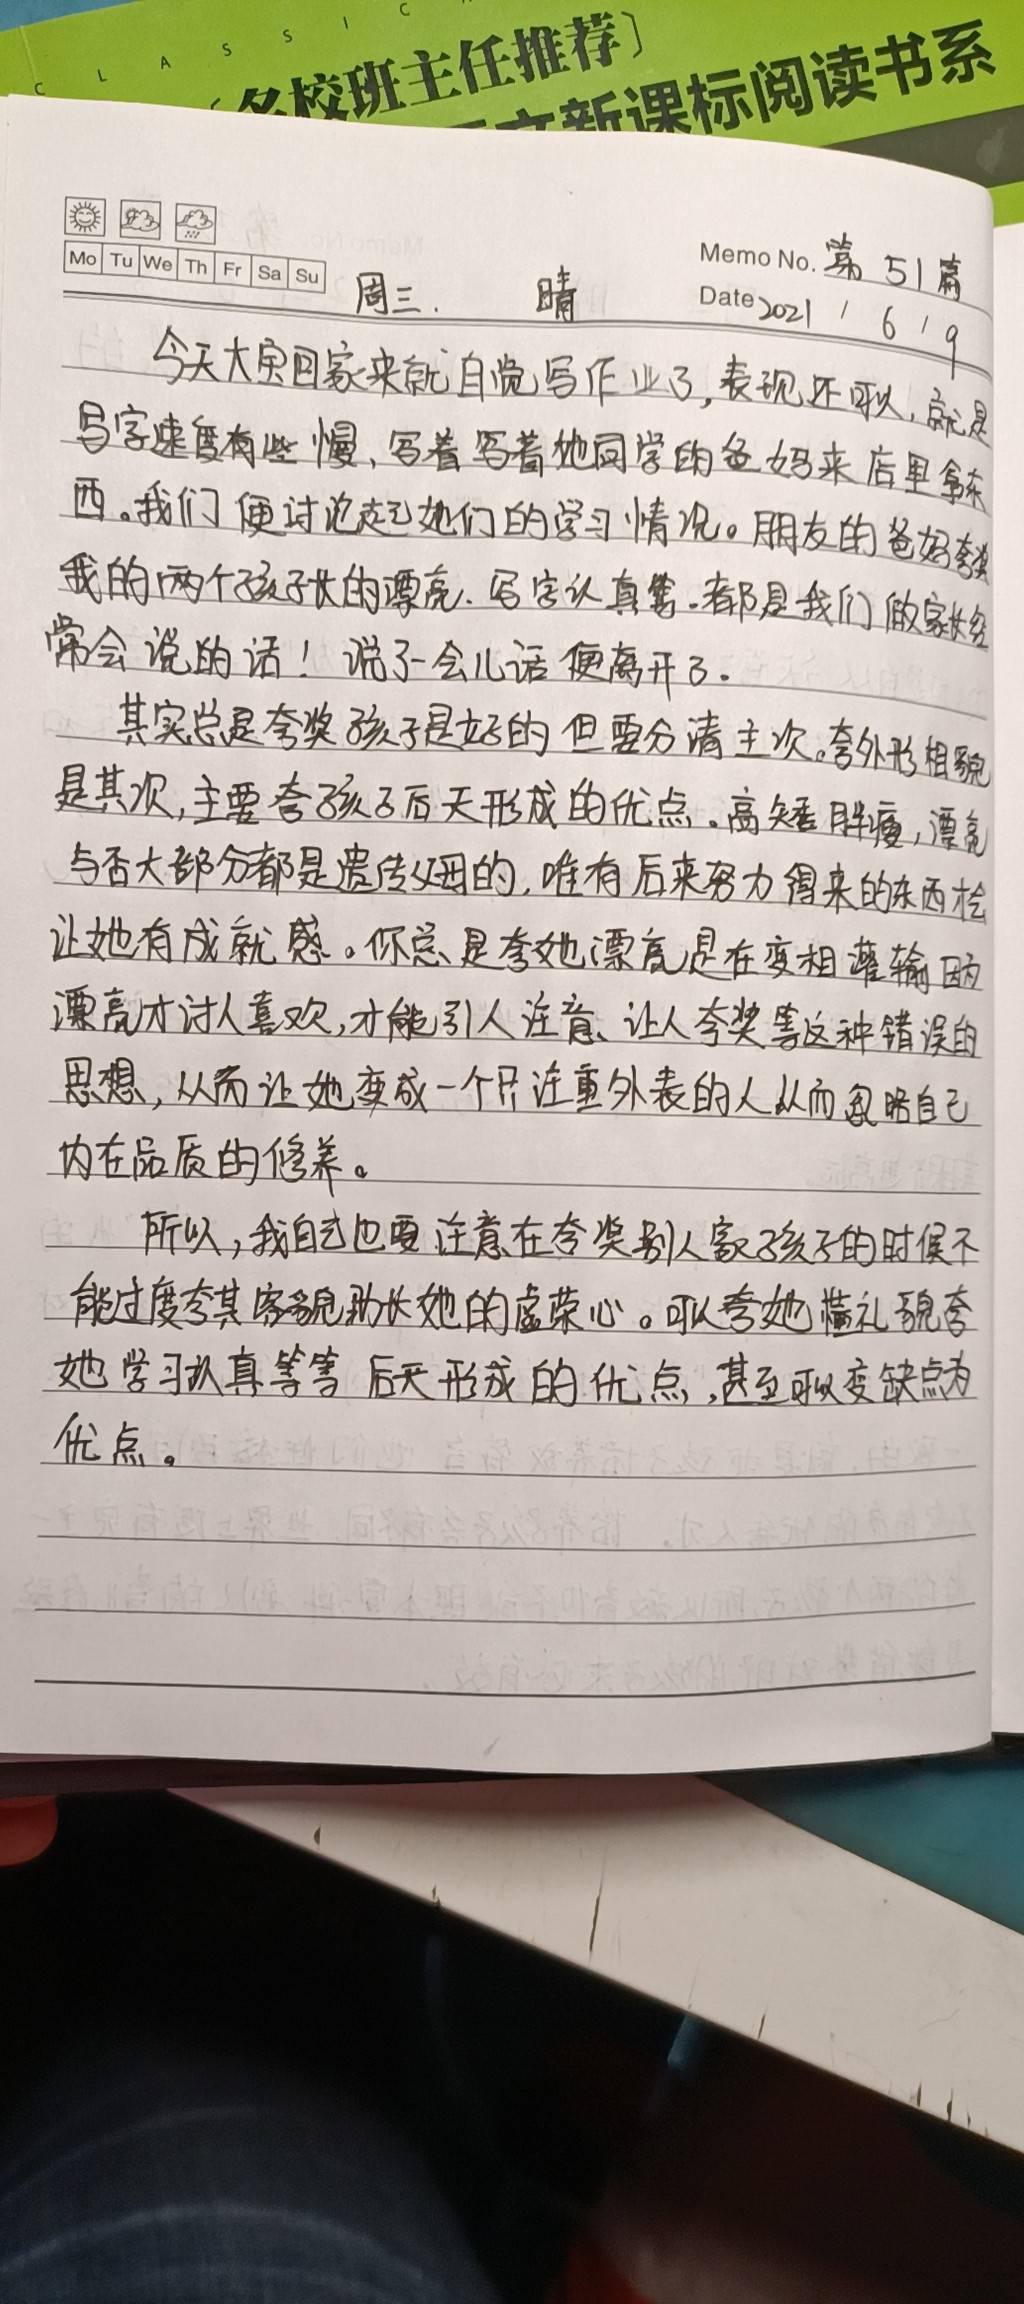 CLASSIC
名校班主任推荐〕
新课标阅读书系
Mo Tu We Th Fr Sa Su
Memo No. 第 51篇
周三. 晴
Date 2021 / 6 / 9
今天大宝回家来就自觉写作业了,表现还可以,就是
写字速度有些慢、写着写着她同学的爸妈来店里拿东
西。我们便讨论起她们的学习情况。朋友的爸妈夸奖
我的两个孩子长的漂亮.写字认真等.都是我们做家长经
常会说的话!说了一会儿话便离开了.
其实总是夸奖孩子是好的但要分清主次。夸外形相貌
是其次,主要夸孩子后天形成的优点.高矮胖瘦,漂亮
与否大部分都是遗传父母的,唯有后来努力得来的东西才会
让她有成就感。你总是夸她漂亮是在变相灌输因为
漂亮才讨人喜欢,才能引人注意、让人夸奖等这种错误的
思想,从而让她变成一个只注重外表的人从而忽略自己
内在品质的修养。
所以,我自己也要注意在夸奖别人家孩子的时候不
能过度夸其容貌助长她的虚荣心。可以夸她懂礼貌夸
她学习认真等等后天形成的优点,甚至可以变缺点为
优点。